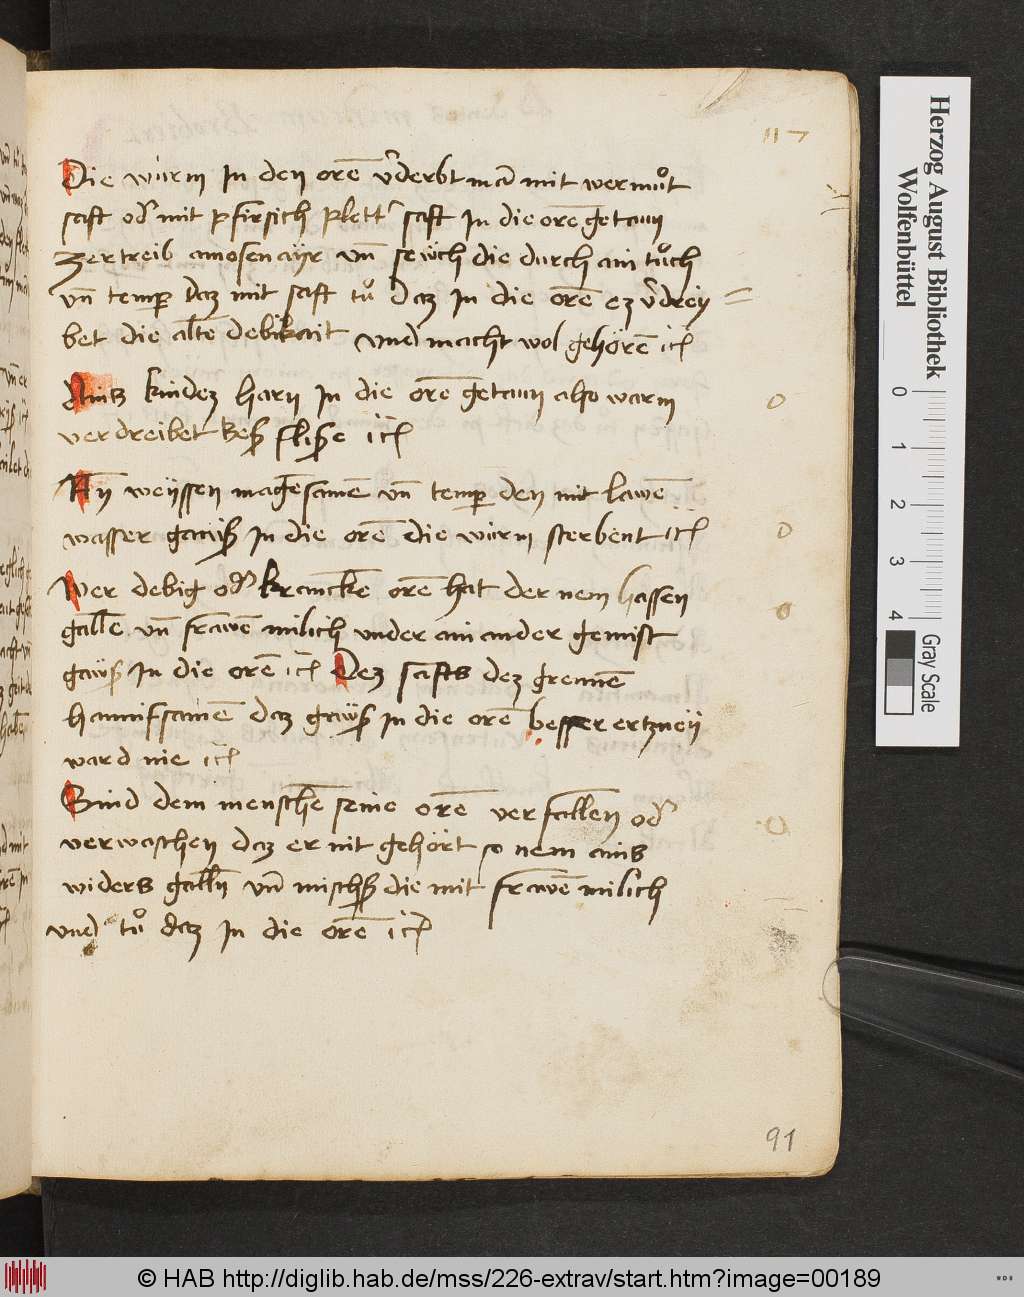 117
Die würm In den orē v̓derbt mā mit wermůt
saft od̓ mit pfirsich plett̓ saft In die orē getaun
zertreib amosenayr vn̄ sewch die durch ain tůch
vn̄ temp̄ daz mit saft tů daz In die orē ez v̓drey =
bet die alte debikait und macht wol gehörē ic̄
Ains kindez harn In die orē getaun also warm
verdreibet ic̄
weyssen magesamē vn̄ temp̄ den mit lawē
wasser In die orē die würm sterbent ic̄
Wer debig od̓ kranckē orē hat der nem hassen
galle vn̄ frawē milich under ain ander gemist
In die orē ic̄ Dez safts dez grenē
hannifsamē daz In die orē besser ertzney
ward nie ic̄
Sind dem menschē seine orē verfallen od̓
verwaschen daz er nit gehört so nem ains
widers galln̄ vn̄ die mit frawē milich
und tů daz In die orē ic̄
91
Herzog August Bibliothek
Wolfenbüttel
0 1 2 3 4
Gray Scale
© HAB http://diglib.hab.de/mss/226-extrav/start.htm?image=00189